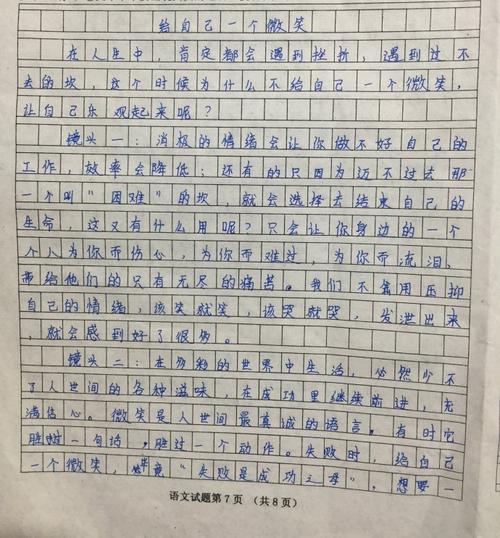 给自己一个微笑
在人生中，肯定都会遇到挫折，遇到过不
去的坎，这个时候为什么不给自己一个微笑，
让自己乐观起来呢？
镜头一：消极的情绪会让你做不好自己的
工作，效率会降低；还有的只因为迈不过去那
一个叫“困难”的坎，就会选择去结束自己的
生命，这又有什么用呢？只会让你身边的一个
个人为你而伤心，为你而难过，为你而流泪、
带给他们的只有无尽的痛苦。我们不需用压抑
自己的情绪，该笑就笑，该哭就哭，发泄出来
，就会感到好了很多。
镜头二：在多彩的世界中生活，必然少不
了人世间的各种滋味，在成功里继续前进，充
满信心。微笑是人世间最真诚的语言。有时它
胜过一句话，胜过一个动作。失败时，给自己
一个微笑，毕竟“失败是成功之母”。想要一
语文试题第7页（共8页）